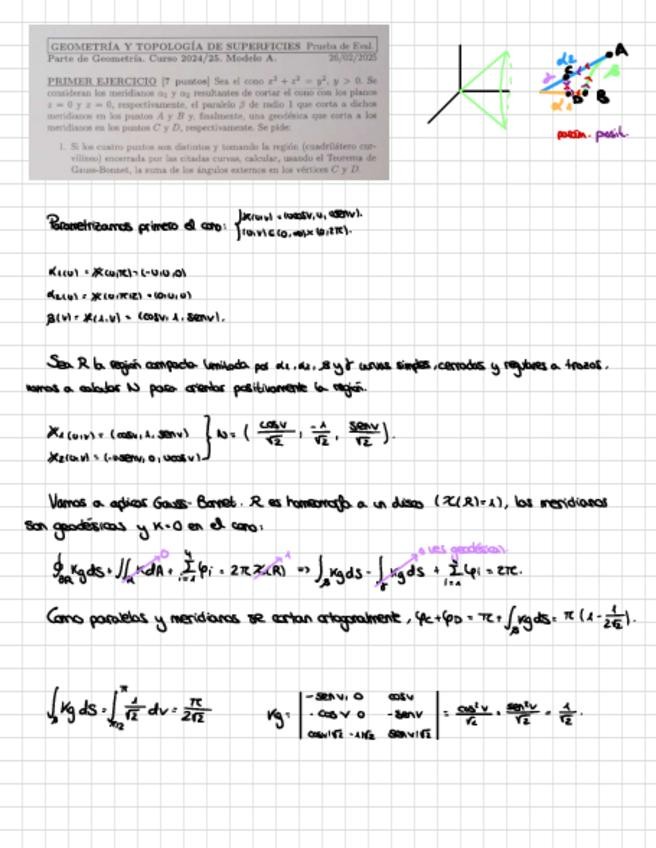 GEOMETRÍA Y TOPOLOGÍA DE SUPERFICIES Prueba de Eval.
Parte de Geometría. Curso 2024/25. Modelo A. 26/02/2025
PRIMER EJERCICIO [7 puntos] Sea el cono x² + z² = y², y > 0. Se
consideran los meridianos α₁ y α₂ resultantes de cortar el cono con los planos
z = 0 y x = 0, respectivamente, el paralelo β de radio 1 que corta a dichos
meridianos en los puntos A y B y, finalmente, una geodésica que corta a los
meridianos en los puntos C y D, respectivamente. Se pide:
1. Si los cuatro puntos son distintos y tomando la región (cuadrilátero cur-
vilíneo) encerrada por las citadas curvas, calcular, usando el Teorema de
Gauss-Bonnet, la suma de los ángulos externos en los vértices C y D.
α₂ A
γ C β
D B
α₁
param. posit.
Parametrizamos primero el cono: { X(u,v) = (ucosv, u, usenv).
(u,v) ∈ (0,∞)×(0,2π).
α₁(u) = X(u,π) = (-u,u,0)
α₂(u) = X(u,π/2) = (0,u,u)
β(v) = X(1,v) = (cosv, 1, senv).
Sea R la región compacta limitada por α₁, α₂, β y γ curvas simples, cerradas y regulares a trozos.
Vamos a calcular N para orientar positivamente la región.
X₁(u,v) = (cosv, 1, senv)
X₂(u,v) = (-usenv, 0, ucosv) } N = ( cosv/√2 , -1/√2 , senv/√2 ).
Vamos a aplicar Gauss-Bonnet. R es homeomorfa a un disco (χ(R)=1), los meridianos
son geodésicas y K=0 en el cono:
∮∂R kg ds + ∬R K dA + Σ⁴ᵢ₌₁ φᵢ = 2π χ(R) ⇒ ∫β kg ds - ∫γ kg ds + Σ⁴ᵢ₌₁ φᵢ = 2π.
0 1 0 (γ es geodésica)
Como paralelos y meridianos se cortan ortogonalmente, φC + φD = π + ∫β kg ds = π (1 - 1/2√2).
∫β kg ds = ∫π/2^π 1/√2 dv = π/2√2
kg = | -senv, 0 cosv |
| -cosv 0 -senv |
| cosv/√2 -1/√2 senv/√2 | = cos²v/√2 + sen²v/√2 = 1/√2 .